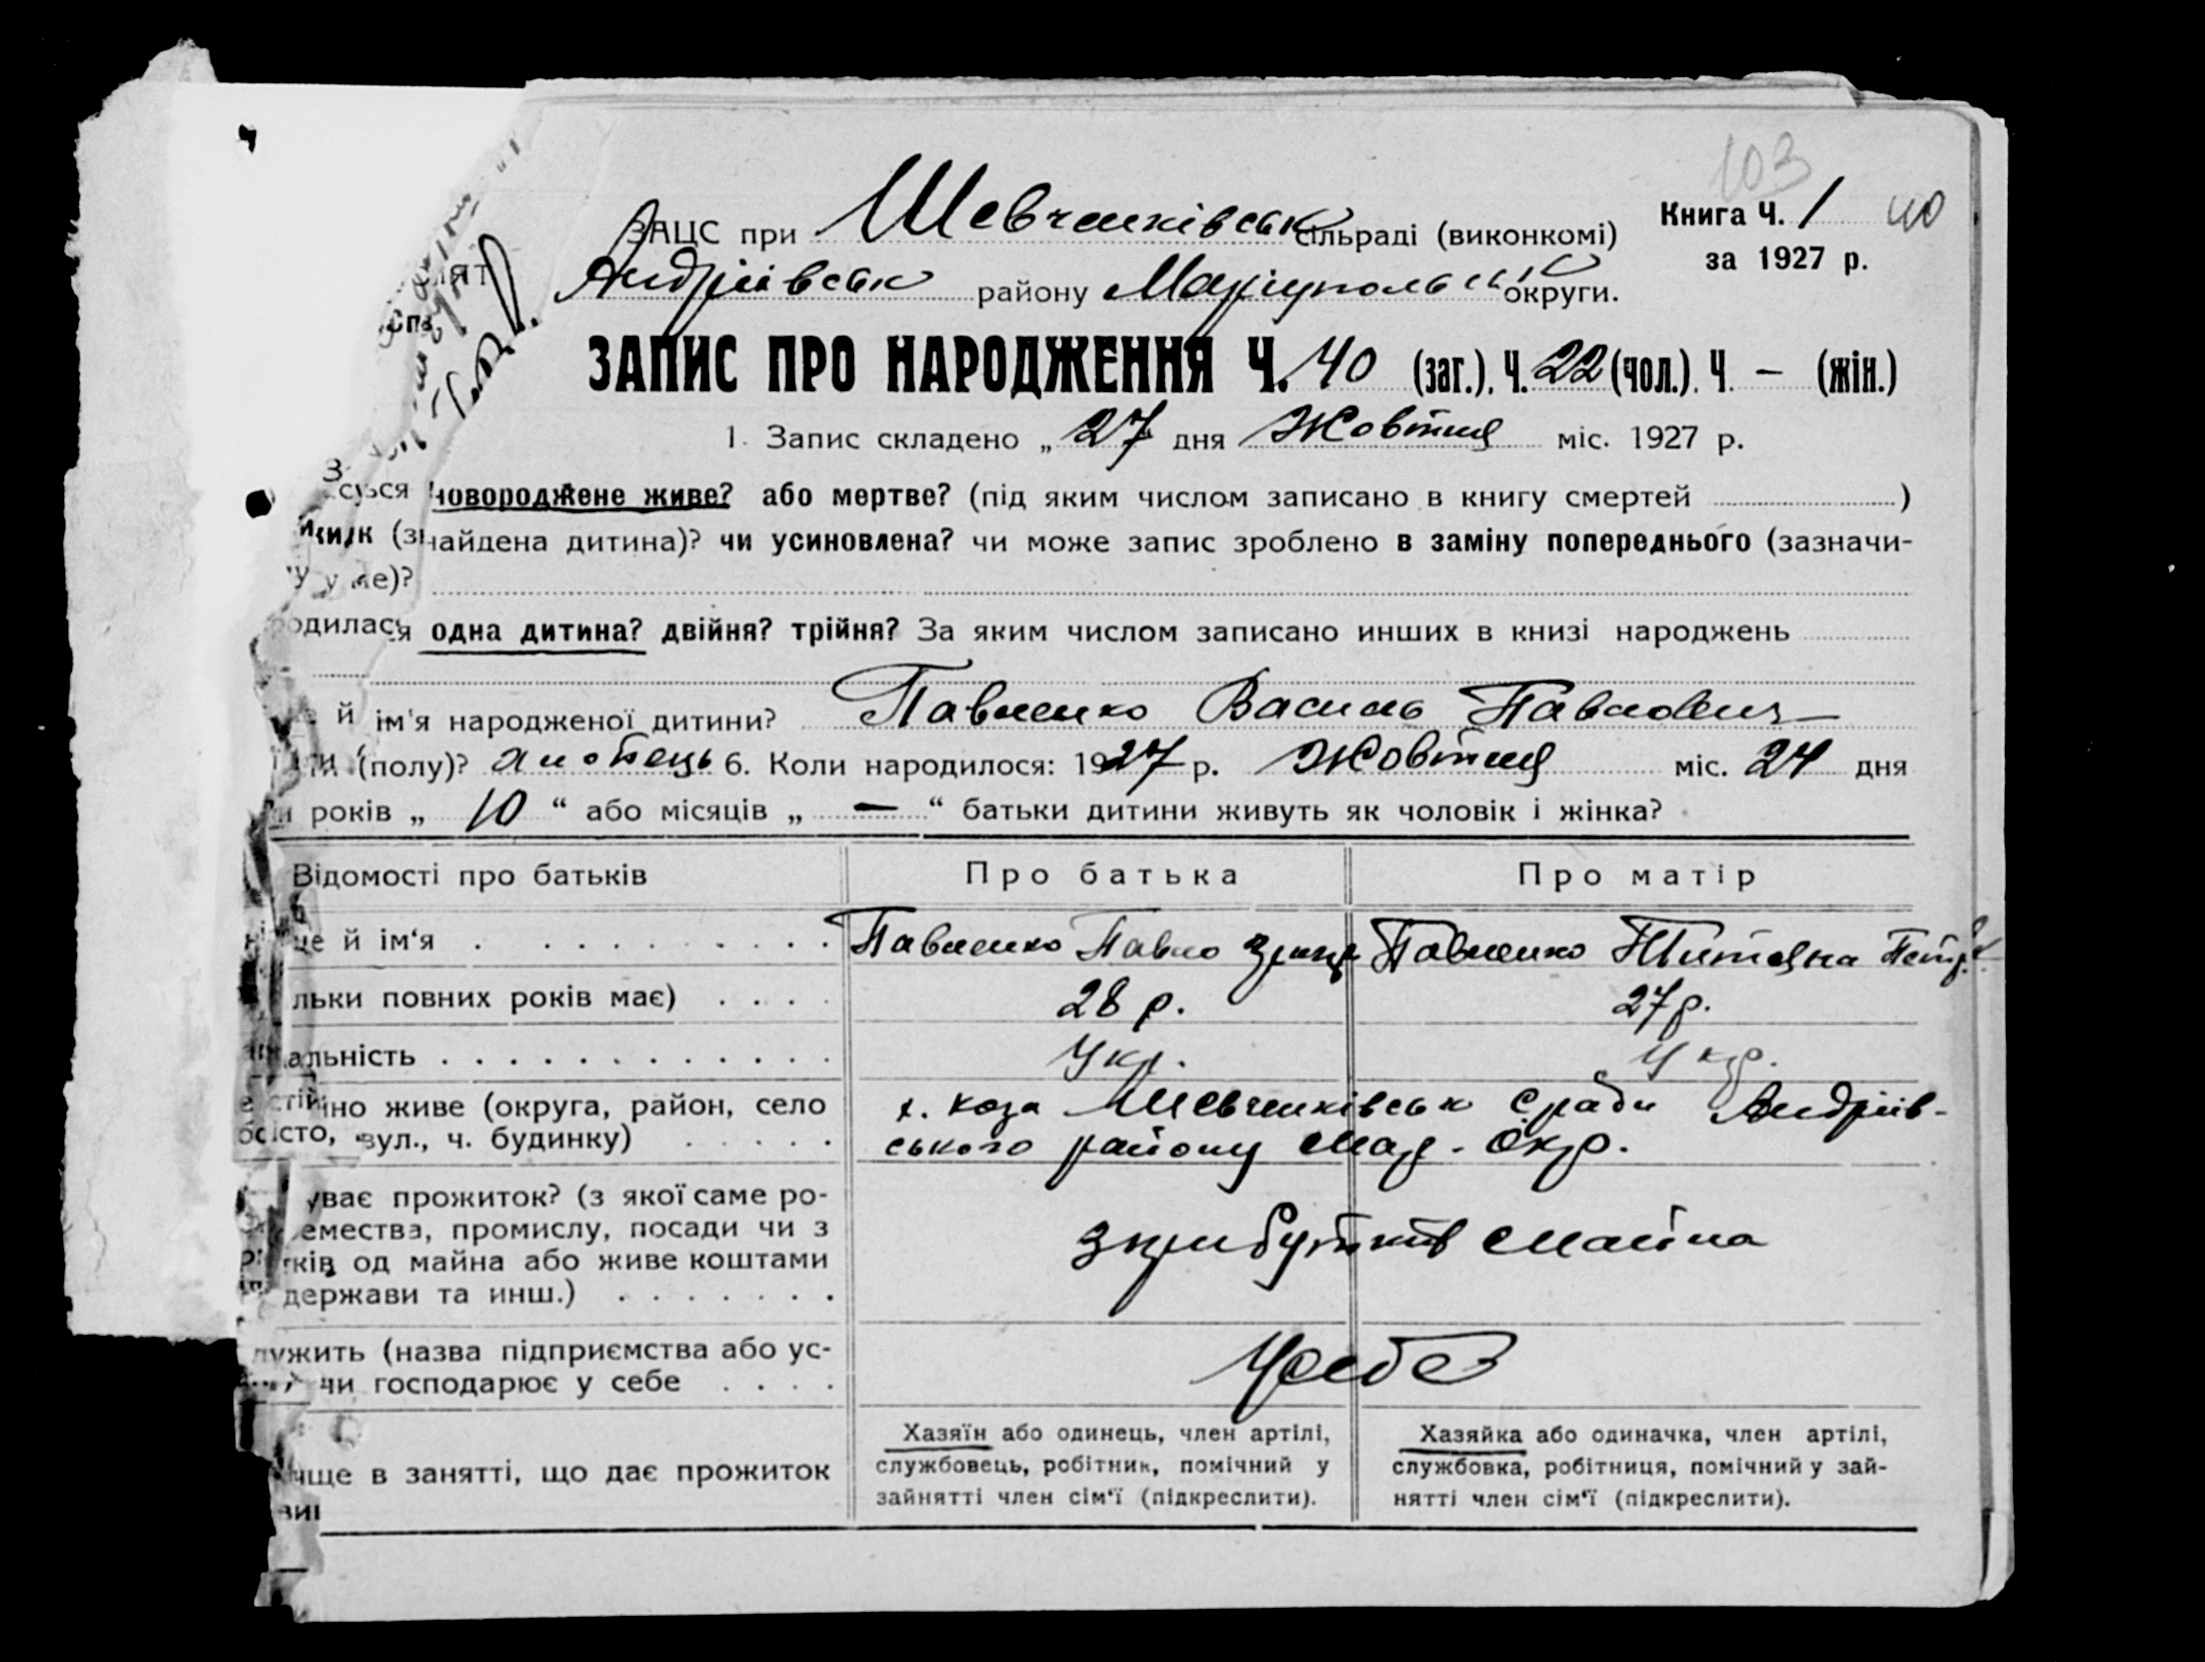 103
ЗАЦС при Шевченківськ сільраді (виконкомі) Книга Ч. 1 40
за 1927 р.
Андріївськ району Маріупольськ округи.
ЗАПИС ПРО НАРОДЖЕННЯ Ч. 40 (заг.). Ч. 22 (чол.). Ч. — (жін.)
1. Запис складено „ 27 дня Жовтня міс. 1927 р.
новороджене живе? або мертве? (під яким числом записано в книгу смертей )
(знайдена дитина)? чи усиновлена? чи може запис зроблено в заміну попереднього (зазначи-
одилася одна дитина? двійня? трійня? За яким числом записано инших в книзі народжень
й ім'я народженої дитини? Павленко Василь Павлович
(полу)? хлопець 6. Коли народилося: 1927 р. Жовтня міс. 24 дня
років „ 10 “ або місяців „ — “ батьки дитини живуть як чоловік і жінка?
Відомості про батьків Про батька Про матір
це й ім'я . . . . . . . . . Павленко Павло Павленко Титяна Петр.
льки повних років має) . . . . 28 р. 27 р.
альність . . . . . . . . . . . . Укр. Укр.
но живе (округа, район, село х. Коза Шевченківськ сради Андріїв-
істо, вул., ч. будинку) . . . . . ського району Мар. Окр.
ує прожиток? (з якої саме ро-
емества, промислу, посади чи з
тків од майна або живе коштами з прибутків майна
держави та инш.) . . . . . . .
ужить (назва підприємства або ус-
чи господарює у себе . . . . У себе
Хазяїн або одинець, член артілі, Хазяйка або одиначка, член артілі,
ище в занятті, що дає прожиток службовець, робітник, помічний у службовка, робітниця, помічний у зай-
зайнятті член сім'ї (підкреслити). нятті член сім'ї (підкреслити).